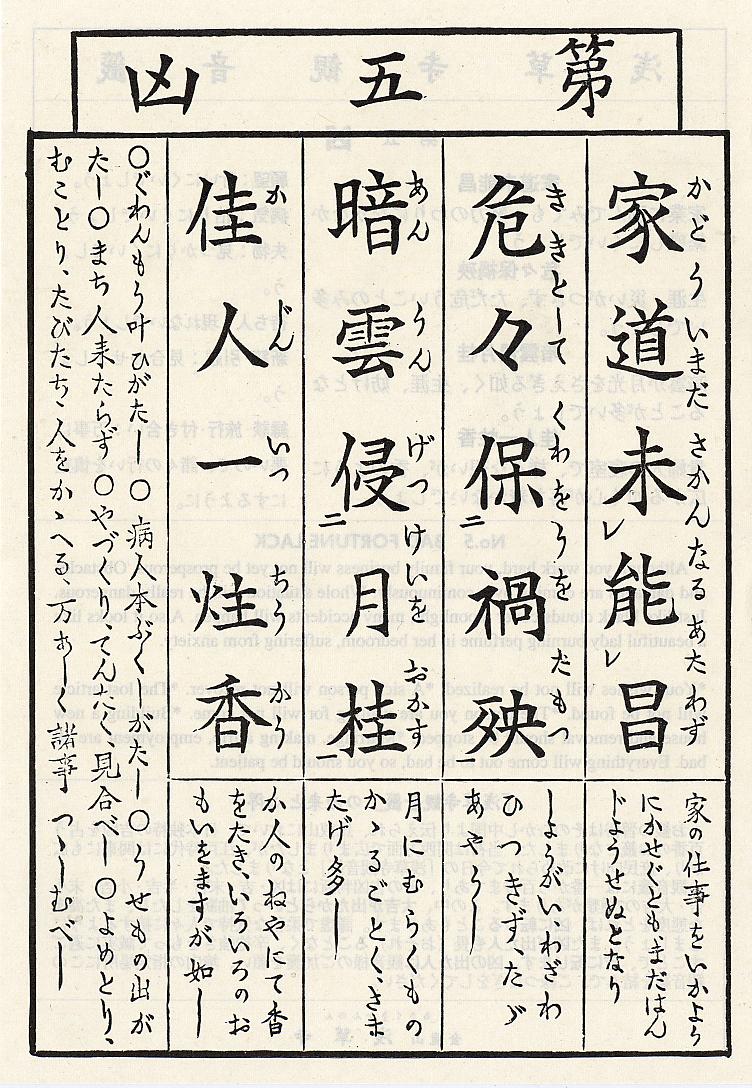 第五凶
家道未レ能レ昌
かどういまださかんなるあたわず
家の仕事をいかよう
にかせぐともまだはん
じょうせぬとなり
危々保二禍殃
ききとしてくわをうをたもつ
しょうがいわざわ
ひつきずたゞ
あやうし
暗雲侵二月桂
あんうんげつけいをおかす
月にむらくもの
かゝるごとくさま
たげ多し
佳人一炷香
かじんいっちうかう
か人のねやにて香
をたき、いろいろのお
もいをますが如し
○ぐわんもう叶ひがたし○病人本ぶくしがたし○うせもの出が
たし○まち人来たらず○やづくり、てんたく、見合べし○よめとり、
むことり、たびたち、人をかゝへる、万あしく諸事つゝしむべし